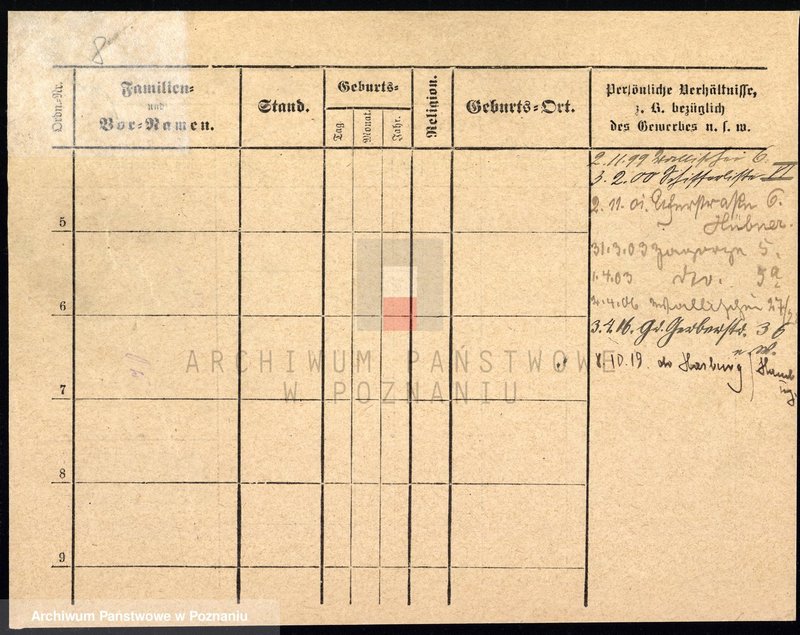 8
Ordn.-Nr.
Familien-
und
Vor-Namen.
Stand.
Geburts-
Tag
Monat.
Jahr.
Religion.
Geburts-Ort.
Persönliche Verhältnisse,
z. B. bezüglich
des Gewerbes u. s. w.
2.11.99 Wallischei 6.
3.2.00 Schifferliste VI
2.11.01. 6.
Hübner.
5
31.3.03 Zagorze 5.
1.4.03 do. 5a
6
2.4.06 Wallischei 27/28
3.4.16. Gr. Gerberstr. 36
10.19. do Harburg
Hamburg
7
8
9
ARCHIWUM PAŃSTWOWE
W POZNANIU
Archiwum Państwowe w Poznaniu